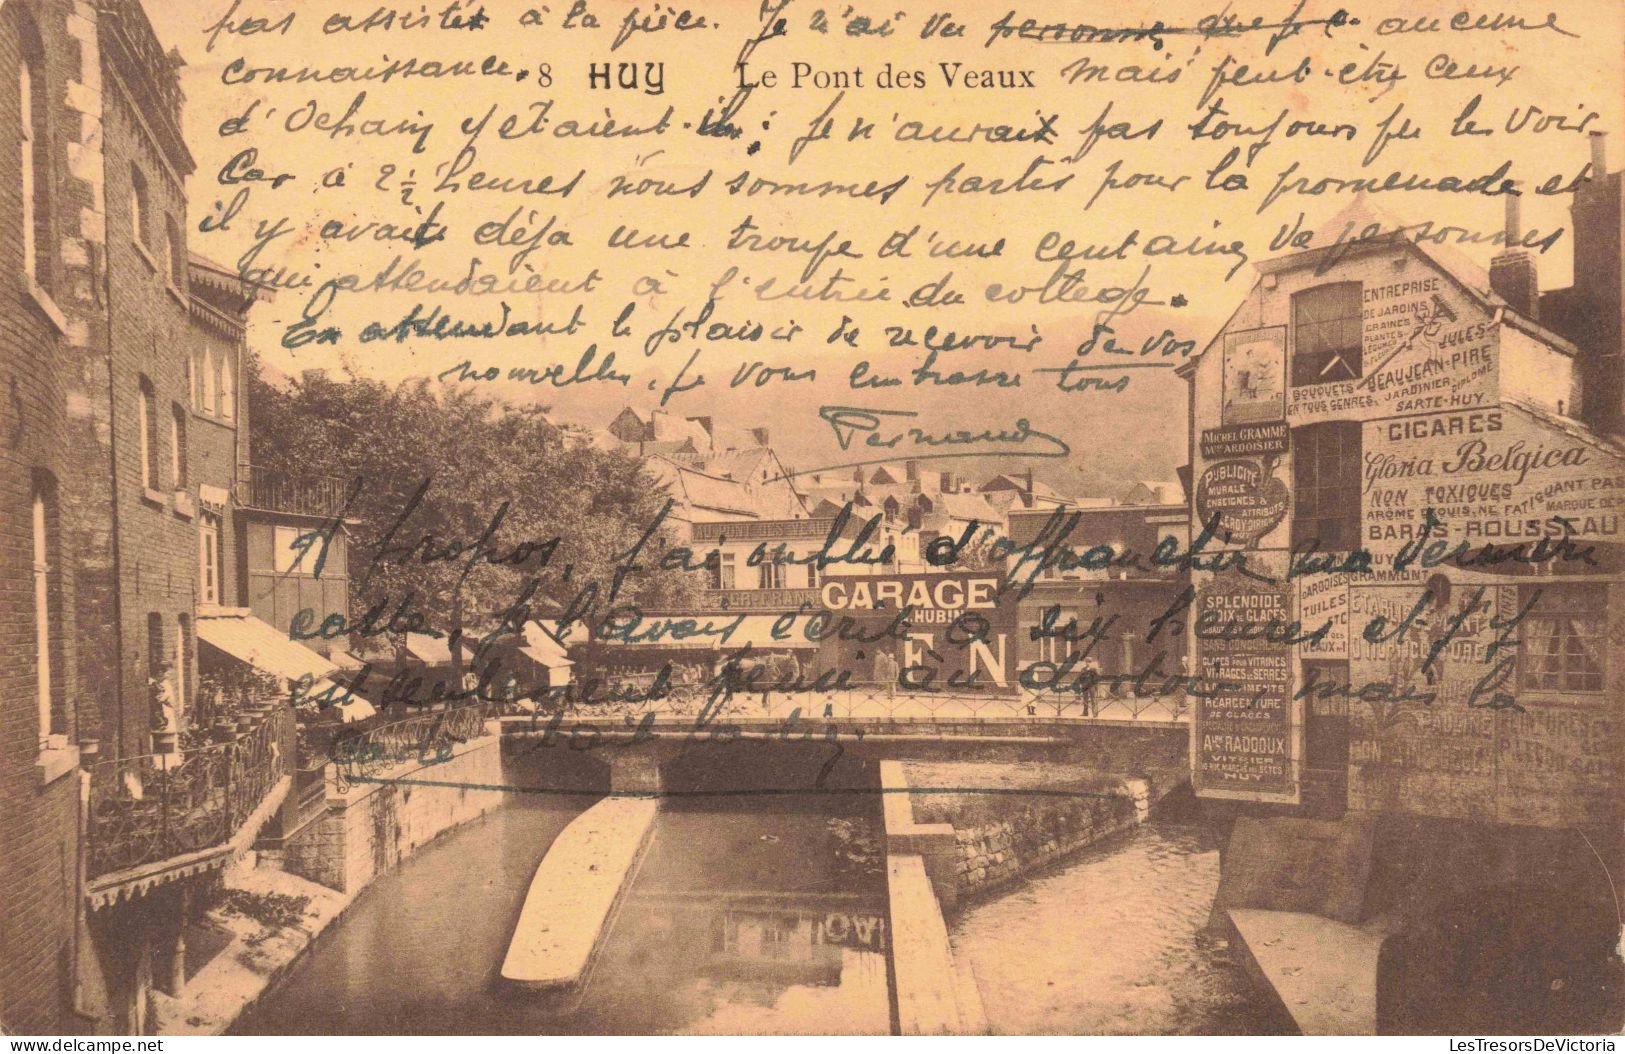 pas assister à la pièce. Je n'ai vu personne que je c aucune
connaissance. Mais peut-être ceux
8 HUY Le Pont des Veaux
d'Ochain y étaient-ils; Je n'aurais pas toujours pu les voir.
Car à 2 1/2 heures nous sommes partis pour la promenade et
il y avait déjà une troupe d'une centaine de personnes
qui attendaient à l'entrée du collège.
En attendant le plaisir de recevoir de vos
nouvelles, Je vous embrasse tous
Fernand
A propos, j'ai oublié d'affranchir ma dernière
carte, Je l'avais écrite à six heures et j'y
est seulement pensé au dortoir mais la
carte était partie.
ENTREPRISE
DE JARDINS
GRAINES
PLANTES
LÉGUMES
FLEURS
JULES
BEAUJEAN-PIRE
JARDINIER DIPLOMÉ
SARTE-HUY.
BOUQUETS
EN TOUS GENRES
MICHEL GRAMME
MTRE ARDOISIER
CIGARES
Gloria Belgica
NON TOXIQUES
AROME EXQUIS, NE FATIGUANT PAS
MARQUE DÉP
BARAS-ROUSSEAU
PUBLICITÉ
MURALE
ENSEIGNES &
ATTRIBUTS
LEROY-DIRION
HUY
GRAMMONT
ARDOISES
TUILES
VEAUX
SPLENDIDE
CHOIX DE GLACES
SANS CONCURRENCE
GLACES POUR VITRINES
VITRAGES DE SERRES
RÉARGENTURE
DE GLACES
RADOUX
VITRIER
HUY
GARAGE
HUBIN
F N